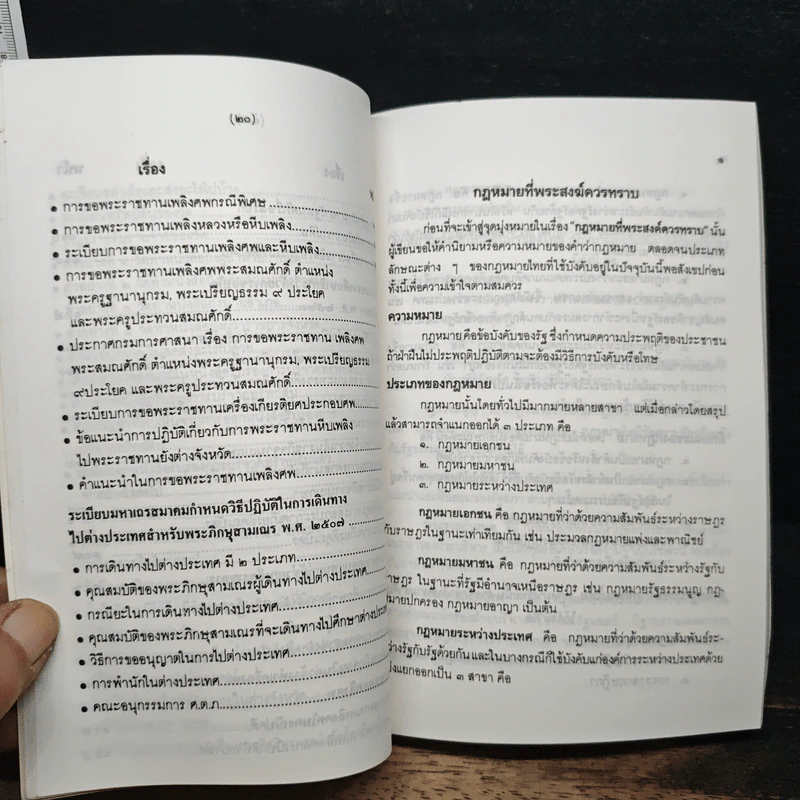 (๒๐)
เรื่อง
• การขอพระราชทานเพลิงศพกรณีพิเศษ
• การขอพระราชทานเพลิงหลวงหรือหีบเพลิง
• ระเบียบการขอพระราชทานเพลิงศพและหีบเพลิง
• การขอพระราชทานเพลิงศพพระสมณศักดิ์ ตำแหน่ง
พระครูฐานานุกรม, พระเปรียญธรรม ๙ ประโยค
และพระครูประทวนสมณศักดิ์
• ประกาศกรมการศาสนา เรื่อง การขอพระราชทาน เพลิงศพ
พระสมณศักดิ์ ตำแหน่งพระครูฐานานุกรม, พระเปรียญธรรม
๙ประโยค และพระครูประทวนสมณศักดิ์
• ระเบียบการขอพระราชทานเครื่องเกียรติยศประกอบศพ
• ข้อแนะนำการปฏิบัติเกี่ยวกับการพระราชทานหีบเพลิง
ไปพระราชทานยังต่างจังหวัด
• คำแนะนำในการขอพระราชทานเพลิงศพ
ระเบียบมหาเถรสมาคมกำหนดวิธีปฏิบัติในการเดินทาง
ไปต่างประเทศสำหรับพระภิกษุสามเณร พ.ศ. ๒๕๐๗
• การเดินทางไปต่างประเทศ มี ๒ ประเภท
• คุณสมบัติของพระภิกษุสามเณรผู้เดินทางไปต่างประเทศ
• กรณียะในการเดินทางไปต่างประเทศ
• คุณสมบัติของพระภิกษุสามเณรที่จะเดินทางไปศึกษาต่างประเทศ
• วิธีการขออนุญาตในการไปต่างประเทศ
• การพำนักในต่างประเทศ
• คณะอนุกรรมการ ศ.ต.ภ.
๑
กฎหมายที่พระสงฆ์ควรทราบ
ก่อนที่จะเข้าสู่จุดมุ่งหมายในเรื่อง "กฎหมายที่พระสงฆ์ควรทราบ" นั้น
ผู้เขียนขอให้คำนิยามหรือความหมายของคำว่ากฎหมาย ตลอดจนประเภท
ลักษณะต่าง ๆ ของกฎหมายไทยที่ใช้บังคับอยู่ในปัจจุบันนี้พอสังเขปก่อน
ทั้งนี้เพื่อความเข้าใจตามสมควร
ความหมาย
กฎหมายคือข้อบังคับของรัฐ ซึ่งกำหนดความประพฤติของประชาชน
ถ้าฝ่าฝืนไม่ประพฤติปฏิบัติตามจะต้องมีวิธีการบังคับหรือโทษ
ประเภทของกฎหมาย
กฎหมายนั้นโดยทั่วไปมีมากมายหลายสาขา แต่เมื่อกล่าวโดยสรุป
แล้วสามารถจำแนกออกได้ ๓ ประเภท คือ
๑. กฎหมายเอกชน
๒. กฎหมายมหาชน
๓. กฎหมายระหว่างประเทศ
กฎหมายเอกชน คือ กฎหมายที่ว่าด้วยความสัมพันธ์ระหว่างราษฎร
กับราษฎรในฐานะเท่าเทียมกัน เช่น ประมวลกฎหมายแพ่งและพาณิชย์
กฎหมายมหาชน คือ กฎหมายที่ว่าด้วยความสัมพันธ์ระหว่างรัฐกับ
ราษฎร ในฐานะที่รัฐมีอำนาจเหนือราษฎร เช่น กฎหมายรัฐธรรมนูญ กฎ-
หมายปกครอง กฎหมายอาญา เป็นต้น
กฎหมายระหว่างประเทศ คือ กฎหมายที่ว่าด้วยความสัมพันธ์ระ-
ว่างรัฐกับรัฐด้วยกัน และในบางกรณีก็ใช้บังคับแก่องค์การระหว่างประเทศด้วย
แยกออกเป็น ๓ สาขา คือ